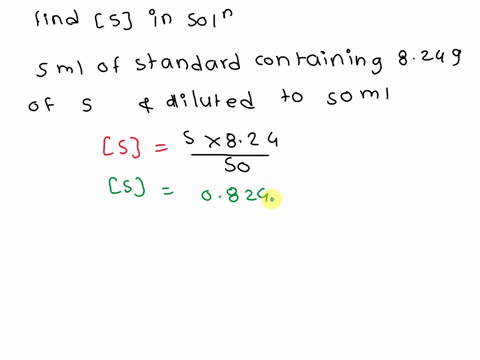 find [S] in solⁿ
5 ml of standard containing 8.24g
of S & diluted to 50ml
[S] = 5 × 8.24
50
[S] = 0.824.